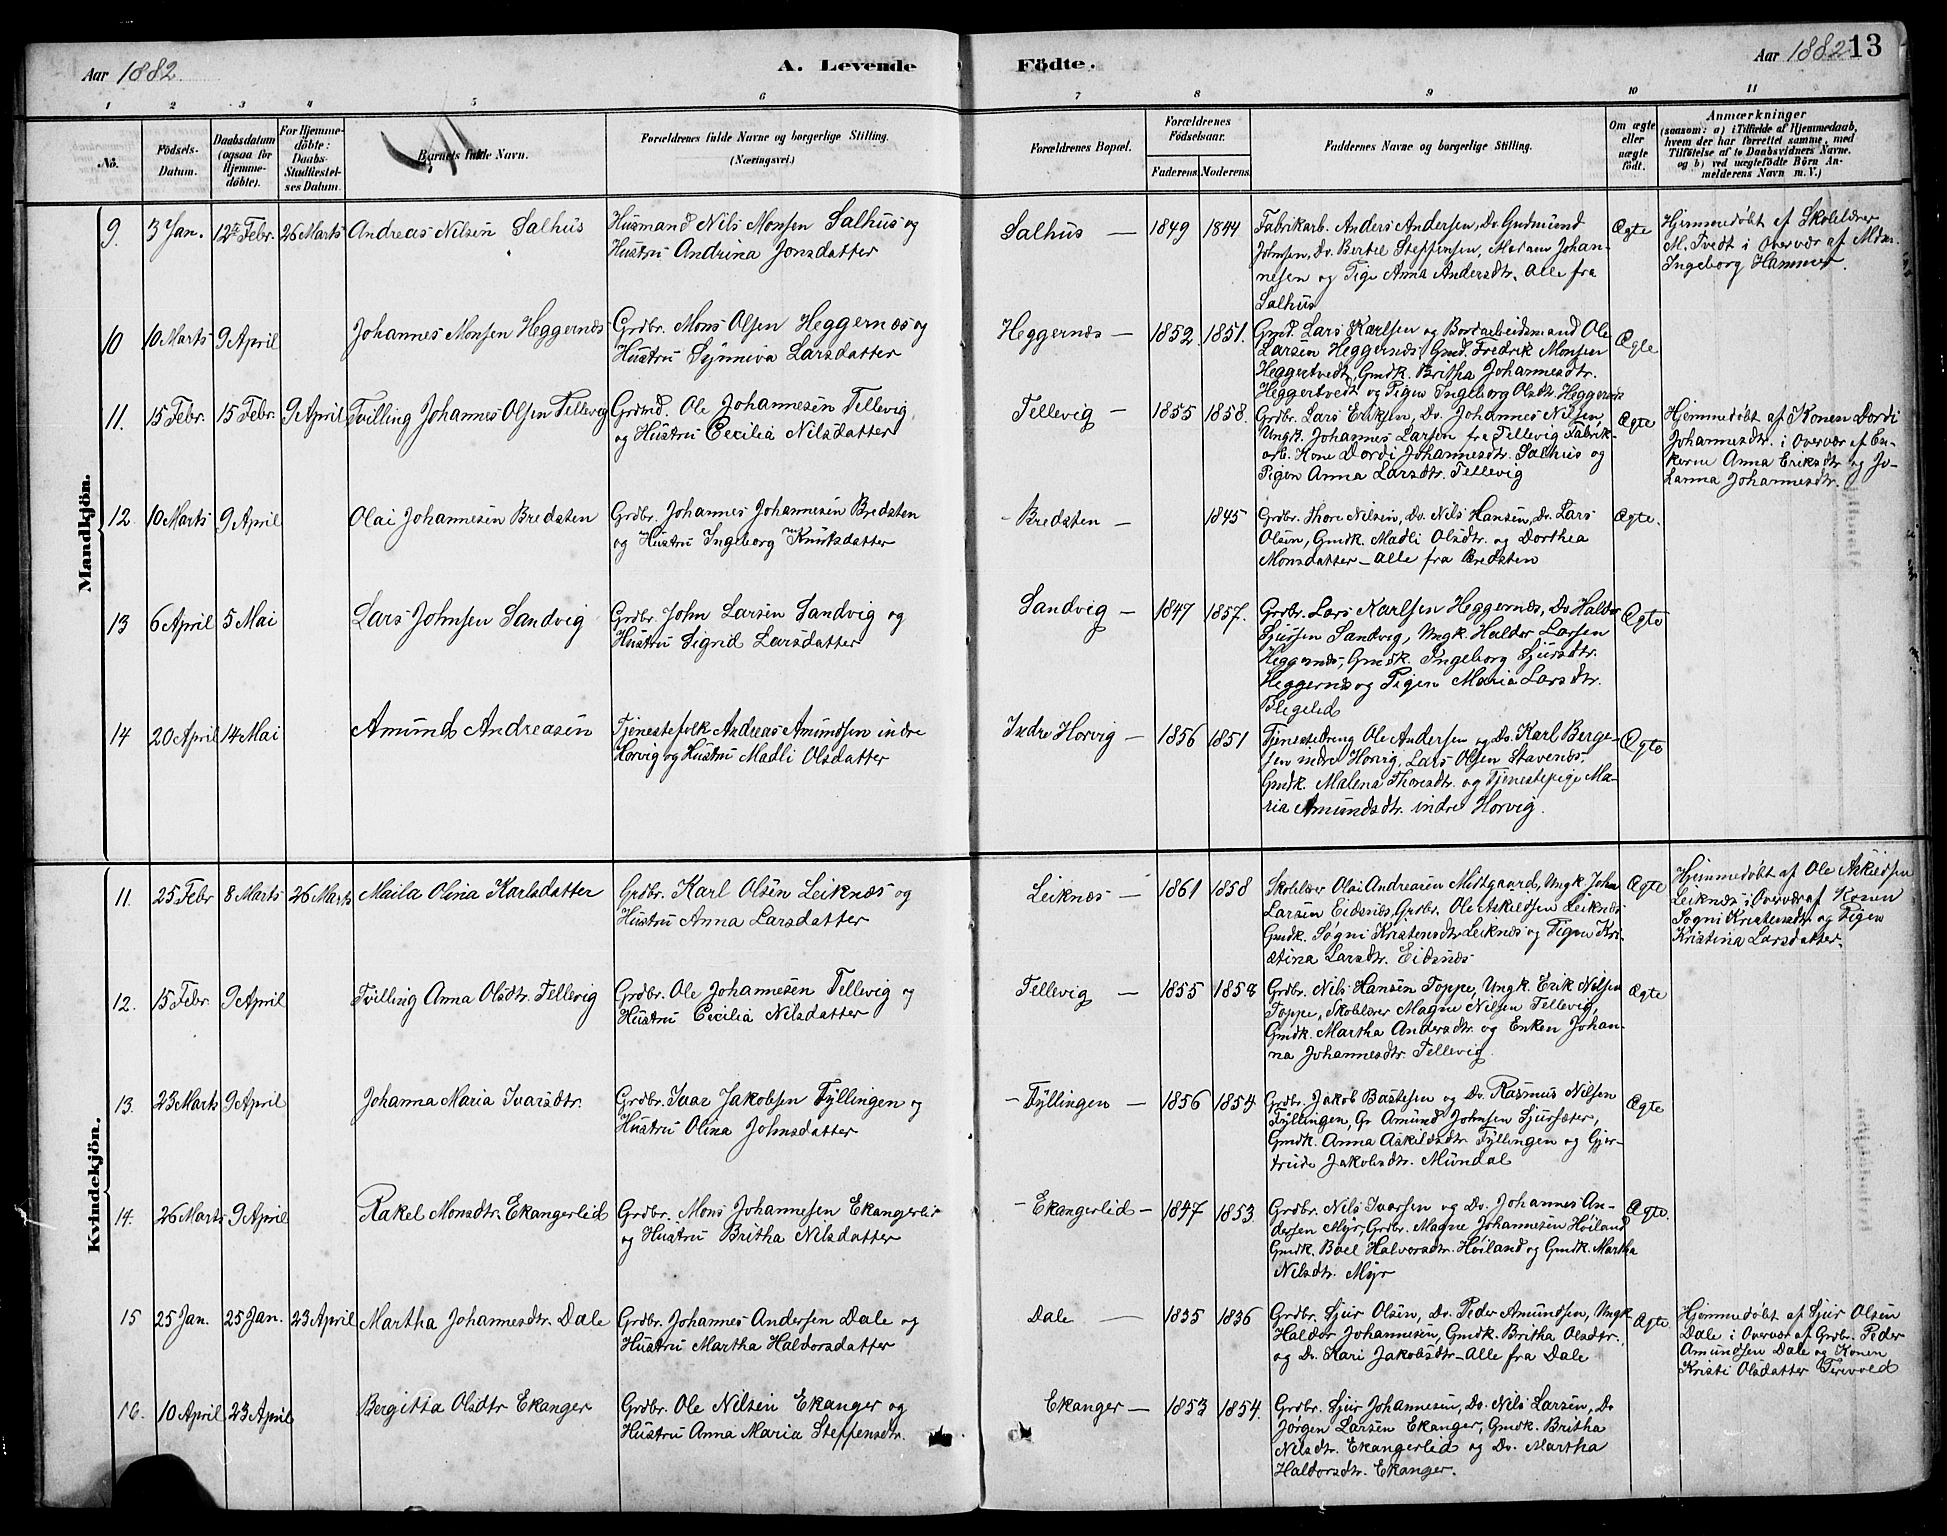 Aar 1882. A. Levende Födte. Aar 1882 13
1 2 3 4 5 6 7 8 9 10 11
No.
Födsels-
Datum.
Daabsdatum
(ogsaa for
Hjemme-
døbte).
For Hjemme-
döbte:
Daabs-
Stadfæstel-
ses Datum.
Barnets fulde Navn.
Forældrenes fulde Navne og borgerlige Stilling.
(Næringsvei.)
Forældrenes Bopæl.
Forældrenes
Födselsaar.
Faderens. Moderens.
Faddernes Navne og borgerlige Stilling.
Om ægte
eller
uægte
født.
Anmærkninger
(saasom: a) i Tilfælde af Hjemmedaab,
hvem der har forrettet samme, med
Tilføielse af to Daabsvidners Navne,
og b) ved uægtefödte Börn An-
melderens Navn m. V.)
Mandkjön.
9. 3 Jan. 12te Febr. 26 Marts Andreas Nilsen Salhus
Husmand Nils Monsen Salhus og
Hustru Andrina Jonsdatter
Salhus — 1849 1844
Fabrikarb. Anders Andersen, Do. Gudmund
Johnsen, Do. Bertel Steffensen, Madam Johan-
nesen og Pige Anna Andersdtr. alle fra
Salhus
Ægte
Hjemmedøbt af Skolelærer
M. Tvedt i Overvær af Mdm.
Ingeborg Hammer.
10 10 Marts 9 April Johannes Monsen Heggernæs
Grdbr. Mons Olsen Heggernæs og
Hustru Synniva Larsdatter
Heggernæs — 1852 1851.
Gmd. Lars Karlsen og Bordarbeidsmand Ole
Larsen Heggernæs, Gmd. Fredrik Monsen
Heggertvedt, Gmdk. Britha Johannesdtr.
Heggertvedt og Pigen Ingeborg Olsdtr. Heggernæs
Ægte
11. 15 Febr. 15 Febr. 9 April Tvilling Johannes Olsen Tellevig
Grdmd. Ole Johannesen Tellevig,
og Hustru Cecilia Nilsdatter
Tellevig — 1855 1858.
Grdbr. Lars Eriksen, Do. Johannes Nilsen,
Ungk. Johannes Larsen fra Tellevig Fabrik-
arb. Kone Dordi Johannesdtr. Salhus og
Pigen Anna Larsdtr. Tellevig
Ægte
Hjemmedøbt af Konen Dordi
Johannesdtr. i Overvær af En-
kerne Anna Eriksdtr og Jo-
hanna Johannesdtr.
12. 10 Marts 9 April Olai Johannesen Bredsten
Grdbr. Johannes Johannesen Bredsten
og Hustru Ingeborg Knutsdatter
- Bredsten — 1845
Grdbr. Thore Nilsen, Do. Nils Hansen, Do. Lars
Olsen, Gmdk. Madli Olsdtr. og Dorthea
Monsdatter — alle fra Bredsten
Ægte.
13 6 April 5 Mai Lars Johnsen Sandvig
Grdbr. John Larsen Sandvig og
Hustru Sigrid Larsdatter
Sandvig — 1847 1857.
Grdbr. Lars Karlsen Heggernæs, Do Haldor
Sjursen Sandvig, Ungk. Haldor Larsen
Heggernæs, Gmdk. Ingeborg Sjursdtr.
Heggernæs og Pigen Maria Larsdtr.
Flegeled
Ægte
14 20 April 14 Mai Amund Andreasen
Tjenestefolk Andreas Amundsen indre
Horvig og Hustru Madli Olsdatter
Indre Horvig — 1856 1851
Tjenestedreng Ole Andersen og Do. Karl Berge-
sen indre Horvig, Lars Olsen Stavenæs,
Gmdk. Malena Thoresdtr. og Tjenestepige Ma-
ria Amundsdtr. indre Horvig.
Ægte
Kvindekjön.
11. 25 Febr 8 Marts 26 Marts Maila Olina Karlsdatter
Grdbr. Karl Olsen Leiknæs og
Hustru Anna Larsdatter
Leiknæs — 1861 1858
Skolelær Olai Andreasen Midtgaard, Ungk. John
Larsen Eidsnæs, Grdbr. Ole Askildsen Leiknæs
Gmdk. Søgni Kristensdtr. Leiknæs og Pigen Kri-
stina Larsdtr. Eidsnæs
Ægte
Hjemmedøbt af Ole Askildsen
Leiknæs i Overvær af Konen
Søgni Kristensdtr og Pigen
Kristina Larsdatter.
12. 15 Febr 9 April Tvilling Anna Olsdtr. Tellevig
Grdbr. Ole Johannesen Tellevig og
Hustru Cecilia Nilsdatter
Tellevig — 1855 1858
Grdbr. Nils Hansen Toppe, Ungk. Erik Nilsen
Toppe, Skolelærer Magne Nilsen Tellevig,
Gmdk. Martha Andersdtr. og Enken Johan-
na Johannesdtr. Tellevig.
Ægte
13. 23 Marts 9 April Johanna Maria Ivarsdtr.
Grdbr. Ivar Jakobsen Fyllingen og
Hustru Olina Johnsdatter
- Fyllingen — 1856 1854
Grdbr. Jakob Bastesen og Do. Rasmus Nilsen
Fyllingen, Gr. Amund Johnsen Sjursæter,
Gmdk. Anna Askildsdtr Fyllingen og Gjer-
trude Jakobsdtr. Mundal
Ægte
14. 26 Marts 9 April Rakel Monsdtr. Ekangerlid
Grdbr. Mons Johannesen Ekangerlid
og Hustru Britha Nilsdatter
- Ekangerlid — 1847 1853
Grdbr. Nils Ivarsen og Do. Johannes An-
dersen Myr, Grdbr. Magne Johannesen Høiland
Gmdk. Boel Halvorsdtr. Høiland og Gmdk. Martha
Nilsdtr. Myr
Ægte.
15 25 Jan. 25 Jan. 23 April Martha Johannesdtr. Dale
Grdbr. Johannes Andersen Dale og
Hustru Martha Haldorsdatter
Dale — 1835 1836
Grdbr. Sjur Olsen, Do. Peder Amundsen, Ungk.
Haldor Johannesen, Gmdk. Britha Olsdtr.
og Do. Kari Jakobsdtr. — Alle fra Dale
Ægte.
Hjemmedøbt af Sjur Olsen
Dale i Overvær af Grdbr. Peder
Amundsen Dale og Konen
Kristi Olsdatter Terevold
16. 10 April 23 April Bergitta Olsdtr Ekanger
Grdbr. Ole Nilsen Ekanger og
Hustru Anna Maria Steffensdtr.
Ekanger — 1853 1854.
Grdbr. Sjur Johannesen, Do. Nils Larsen, Do
Jørgen Larsen Ekanger, Gmdk. Britha
Nilsdtr. Ekangerlid og Do. Martha
Haldorsdtr. Ekanger.